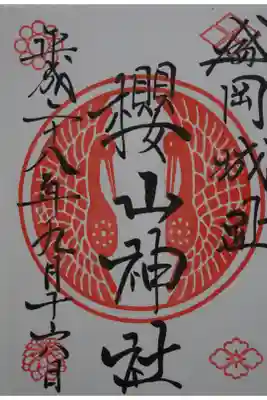 盛岡城址
櫻山神社
平成二十八年九月十六日